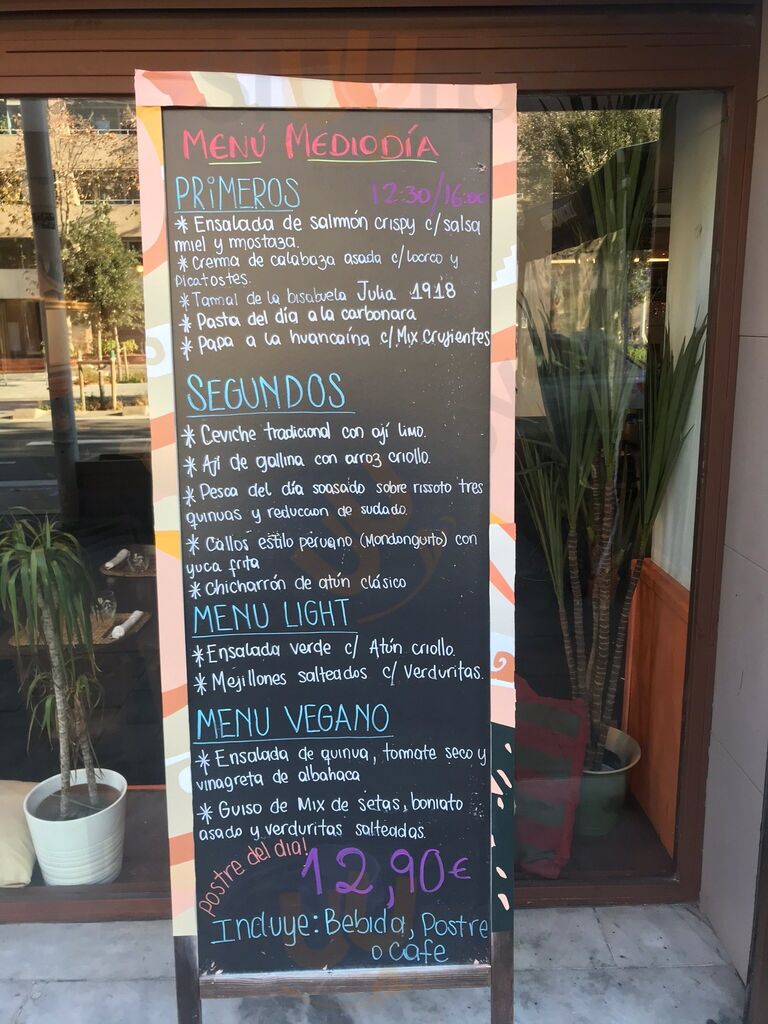 MENÚ MEDIODÍA
PRIMEROS 12:30/16:00
* Ensalada de salmón crispy c/salsa
miel y mostaza.
* Crema de calabaza asada c/loorco y
picatostes.
* Tamal de la bisabuela Julia 1918
* Pasta del día a la carbonara
* Papa a la huancaína c/Mix Crujientes
SEGUNDOS
* Ceviche tradicional con ají limo.
* Ají de gallina con arroz criollo.
* Pesca del día soasado sobre rissoto tres
quinuas y reduccion de sudado.
* Callos estilo peruano (Mondonguito) con
yuca frita
* Chicharrón de atún clásico
MENU LIGHT
* Ensalada verde c/ Atún criollo.
* Mejillones salteados c/ Verduritas.
MENU VEGANO
* Ensalada de quinua, tomate seco y
vinagreta de albahaca
* Guiso de Mix de setas, boniato
asado y verduritas salteadas.
postre del dia!
12,90€
Incluye: Bebida, Postre
o Cafe